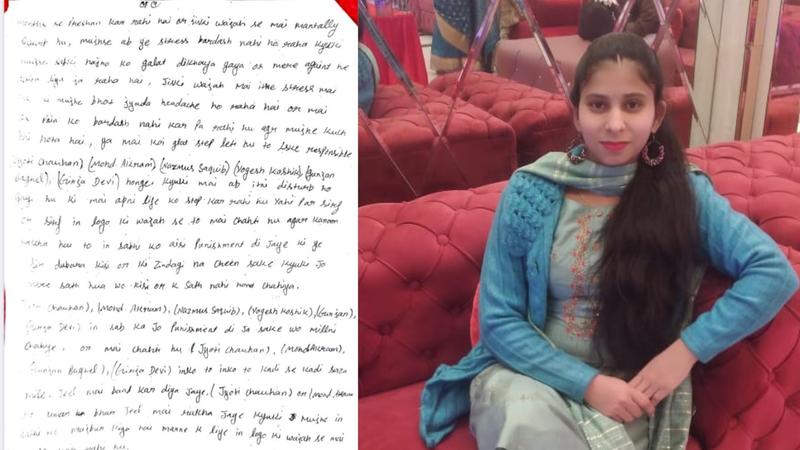 months se pareshan kar rahi hai or iski wajah se mai mentally
hu, mujhse ab ye stress bardash nahi ho raha kyuki
mujhe sabki najro ko galat dikhaya gaya or mere against ne
liya ja raha hai, Jiski wajah mai itne stress mai
hu mujhe bhot zyada headache ho raha hai or mai
is pain ko bardash nahi kar pa rahi hu agr mujhe kuch
bhi hota hai, ya mai koi glat step leti hu to iske responsible
Jyoti Chauhan) (Mohd Akram) (Nazmus Saquib) (Yogesh Koshik) (Gunjan
Baghel), (Girija Devi) honge kyuki mai ab itni disturb ho
hu ki mai apni life ko stop kar rahi hu yahi par sirf
or sirf in logo ki wajah se to mai chahti hu agar kanoon
saccha hai to in sabhi ko aisi Punishment di Jaye ki ye
dubara kisi or ki Zindagi na cheen sake kyuki Jo
mere sath hua wo kisi or k sath nahi hona chahiye.
Chauhan), (Mohd Akram), (Nazmus Saquib), (Yogesh Koshik), (Gunjan),
(Girija Devi) in sab ka Jo Punishment di Ja sake wo millni
Chahiye. or mai chahti hu (Jyoti Chauhan), (Mohd Akram),
(Gunjan Baghel), (Girija Devi) inko to inko to kadi se kadi saza
mile. Jeel mai band kar diya Jaye. (Jyoti chauhan) or (Mohd. Akram
ko umar bhar Jeel mai rakha Jaye kyuki mujhe in
sabhi ne majbur kiya hai marne k liye in logo ki wajah se mai
rahi hu.